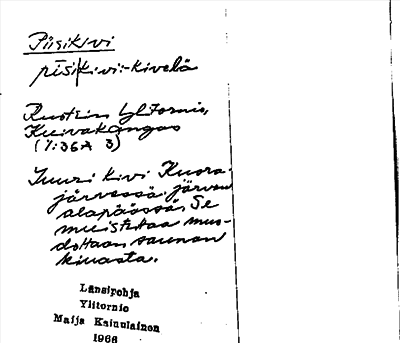 Piisikivi
pīsikivi: -kivelä
Ruotsin Ylitornio,
Kuivakangas
(1:36A 3)
Suuri kivi Kuora-
järvessä, järven
alapäässä. Se
muistuttaa muo-
doltaan saunan
kiuasta.
Länsipohja
Ylitornio
Maija Kainulainen
1966